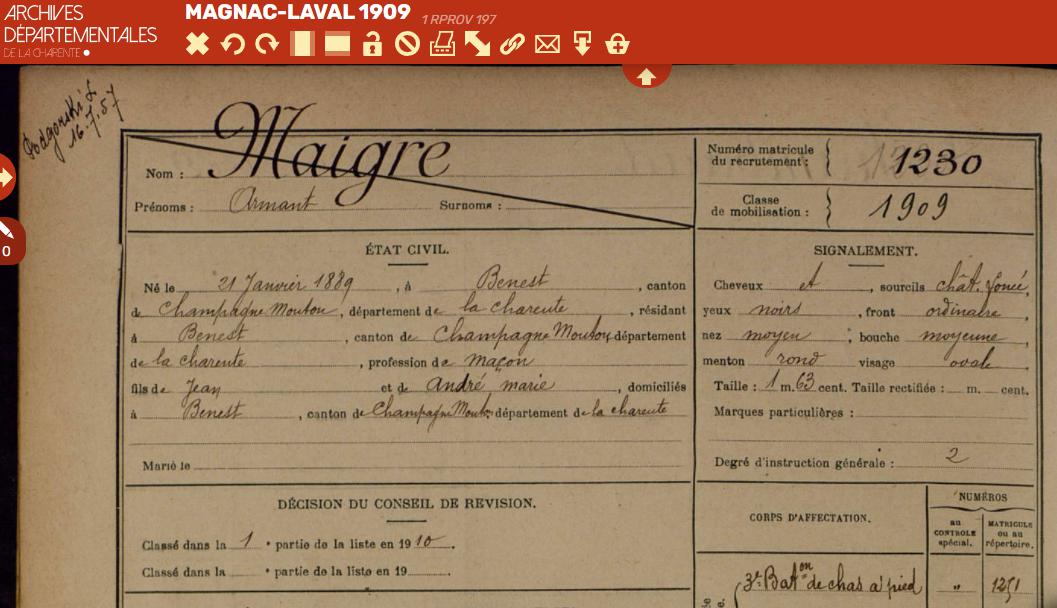 ARCHIVES
DÉPARTEMENTALES
DE LA CHARENTE
MAGNAC-LAVAL 1909 1 RPROV 197
0
Podgorski L
16.7.57
Nom : Maigre
Prénoms : Armant Surnoms :
Numéro matricule
du recrutement : 1230
Classe
de mobilisation : 1909
ÉTAT CIVIL.
Né le 21 Janvier 1889, à Benest, canton
de Champagne Mouton, département de la charente, résidant
à Benest, canton de Champagne Mouton, département
de la charente, profession de maçon
fils de Jean et de André marie, domiciliés
à Benest, canton de Champagne Mout. département de la charente
Marié le
SIGNALEMENT.
Cheveux et, sourcils chât. foncé,
yeux noirs, front ordinaire,
nez moyen ; bouche moyenne,
menton rond visage ovale
Taille : 1 m. 63 cent. Taille rectifiée : m. cent.
Marques particulières :
Degré d'instruction générale : 2
DÉCISION DU CONSEIL DE REVISION.
Classé dans la 1 e partie de la liste en 1910.
Classé dans la e partie de la liste en 19
CORPS D'AFFECTATION.
NUMÉROS
au
CONTROLE
spécial.
MATRICULE
ou au
répertoire.
3e Baton de chas à pied " 1251